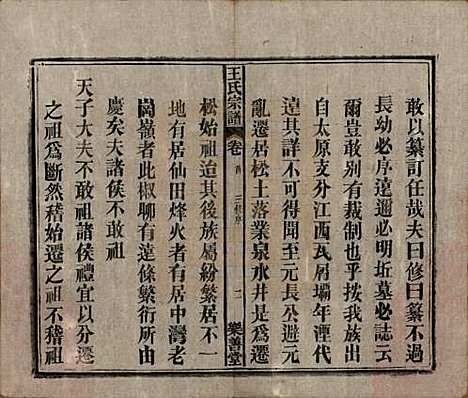 敢以纂訂任哉夫曰修曰纂不過
長幼必序遠邇必明坵墓必誌云
爾豈敢别有裁制也乎按我族出
自太原支分江西瓦屑壩年湮代
遠其詳不可得聞至元長公避元
亂遷居松土落業泉水井是爲遷
王氏宗譜 卷首 序 二 樂善堂
松始祖迨其後族屬紛繁居不一
地有居仙田烽火者有居中灣老
崗嶺者此椒聊有遠條繁衍所由
慶矣夫諸侯不敢祖
天子大夫不敢祖諸侯禮宜以分遷
之祖爲斷然稽始遷之祖不稽祖